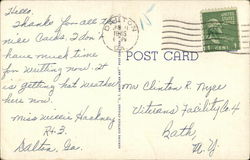 Hello,
Thanks for all the
nice Cards, I don't
have much time
for writting now. It
is getting hot weather
here now.
Miss Willie Hackney
R#3.
Dalton, Ga.
DALTON
1945
POST CARD
1 CENT 1
Mr Clinton R. Nyee
Veterans Facility B4
Bath
N.Y.